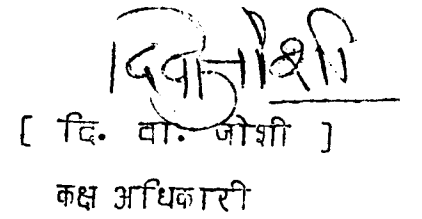 दिवाजोशी
[ दि. वा. जोशी ]
कक्ष अधिकारी